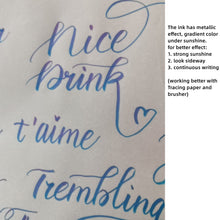 Nice
Drink
t'aime
Trembling
The ink has metallic
effect, gradient color
under sunshine.
for better effect:
1. strong sunshine
2. look sideway
3. continuous writing
(working better with
Tracing paper and
brusher)